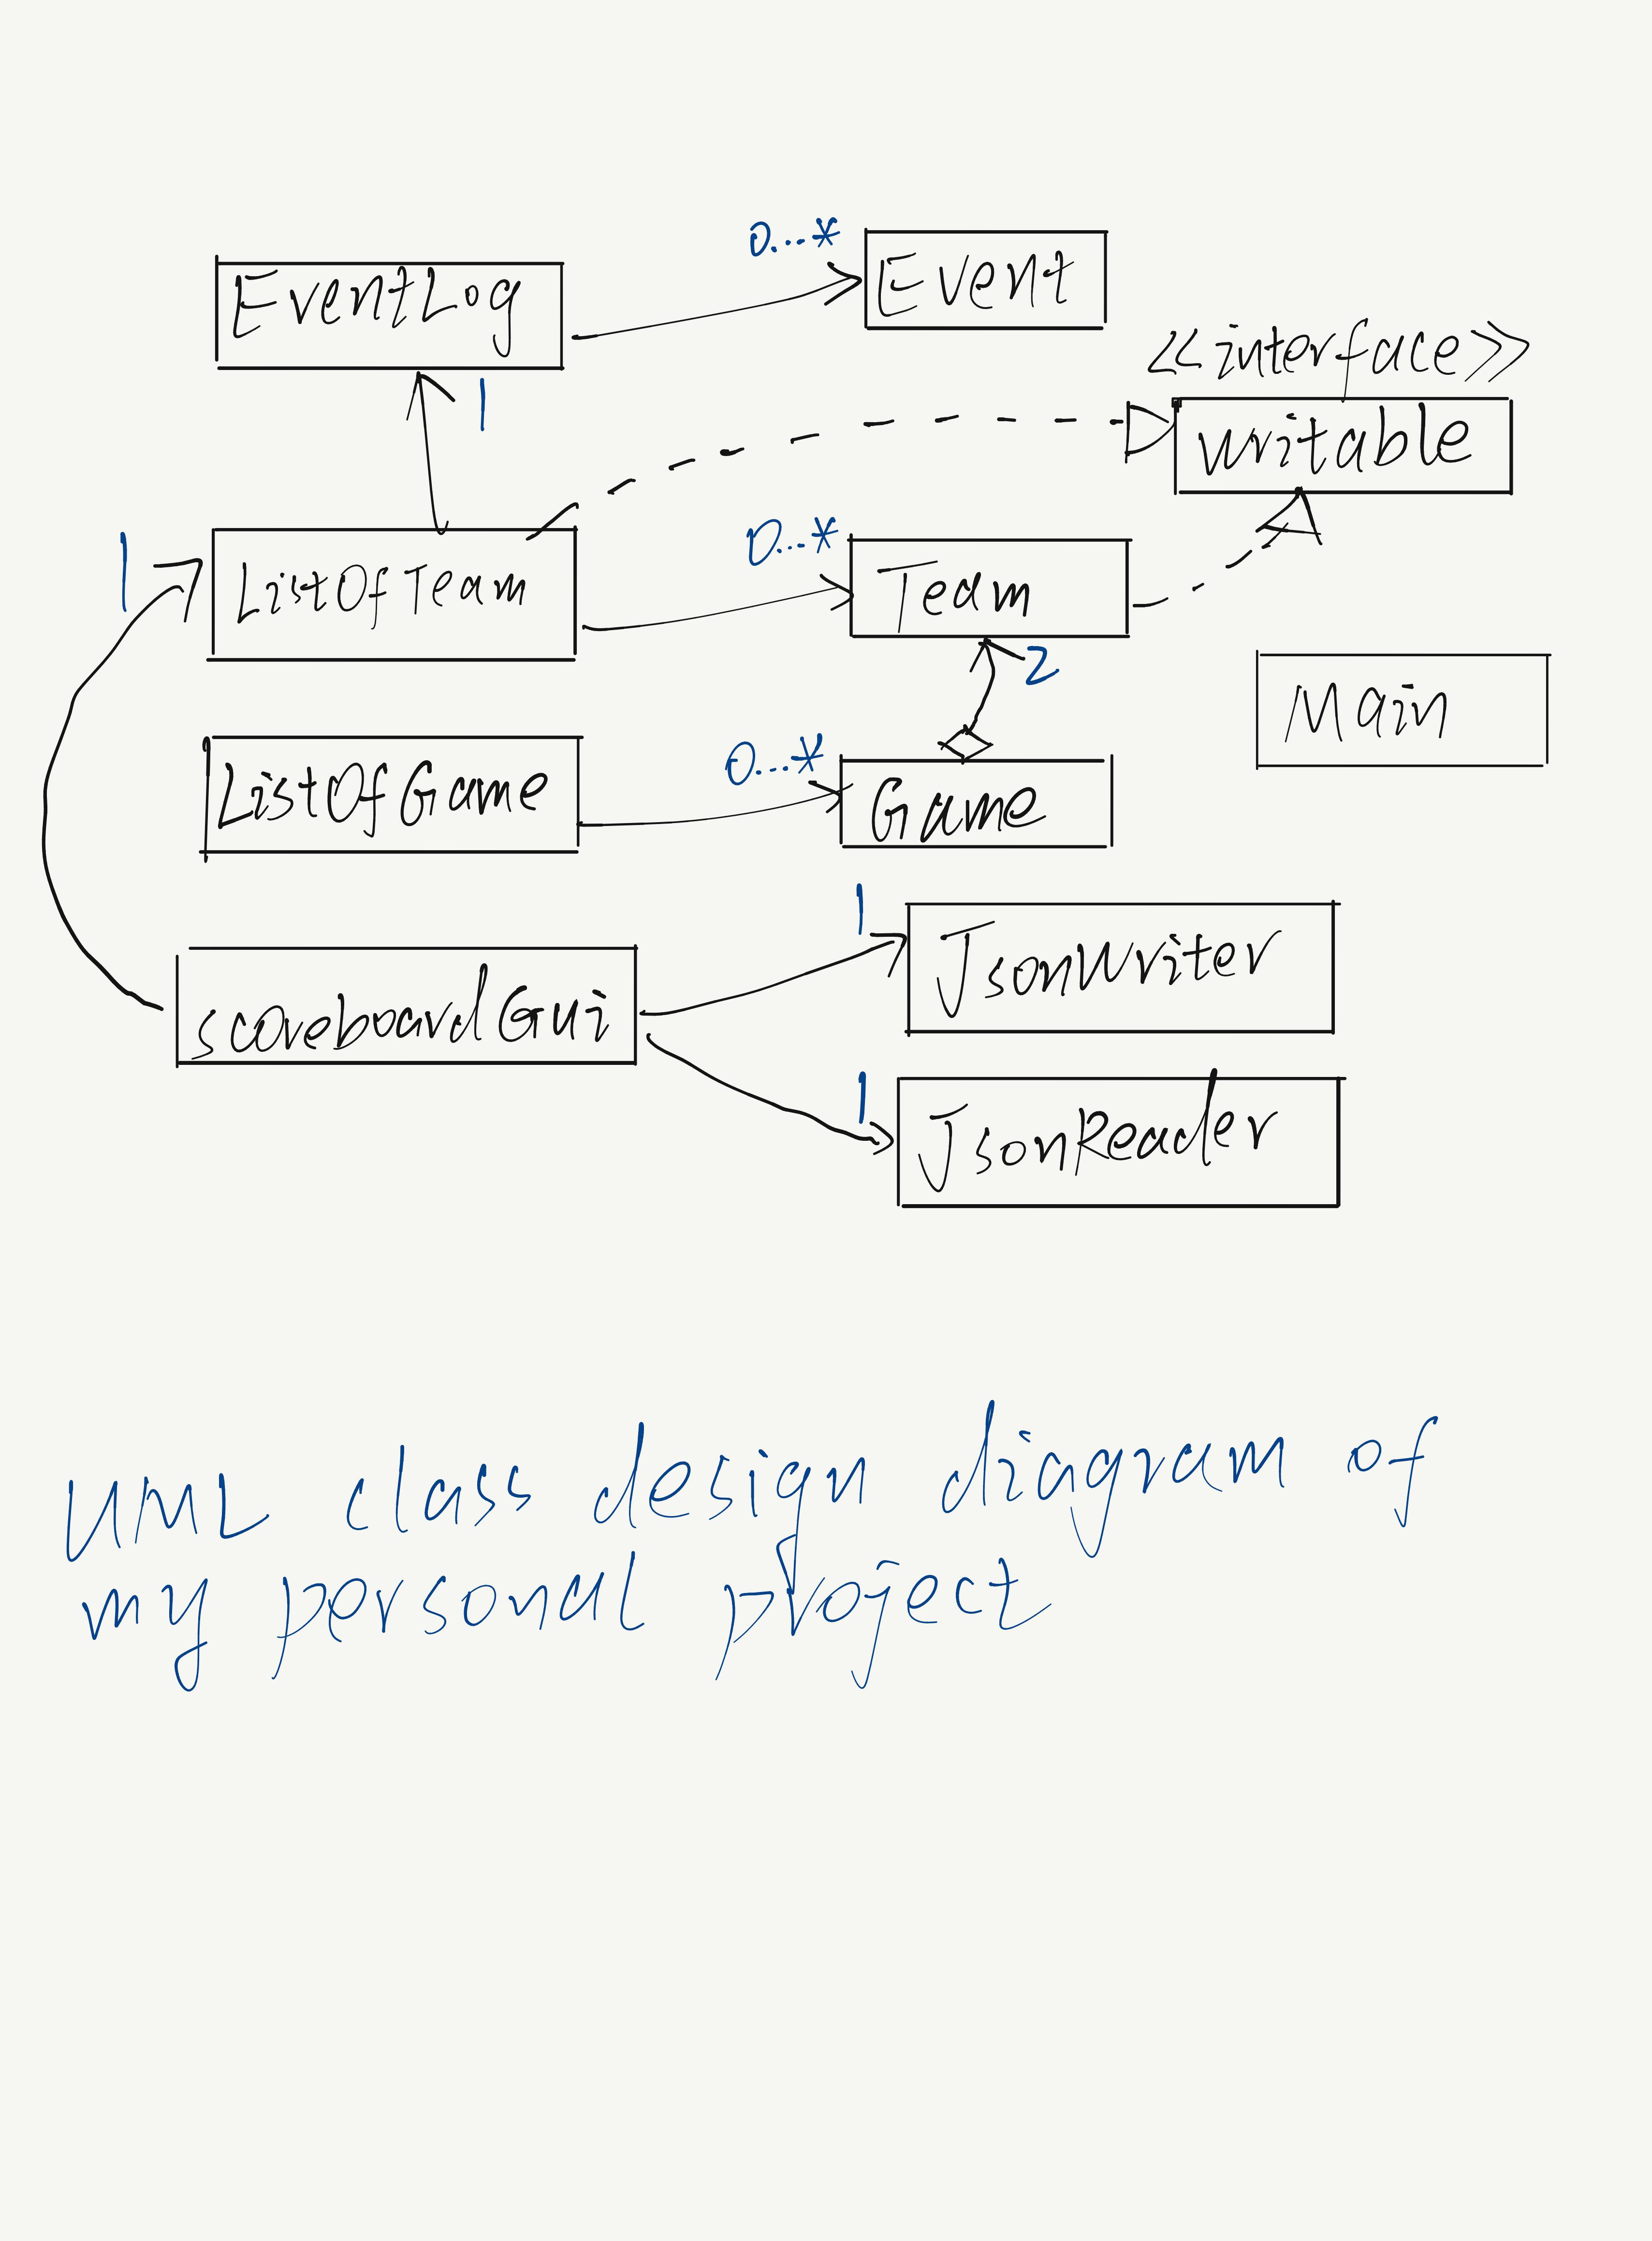 0...*
EventLog
Event
<<interface>>
1
writable
1
0...*
ListOfTeam
Team
2
Main
0...*
ListOfGame
Game
1
JsonWriter
scoreboardGui
1
JsonReader
UML class design diagram of
my personal project